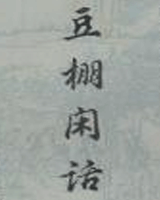 豆棚闲话